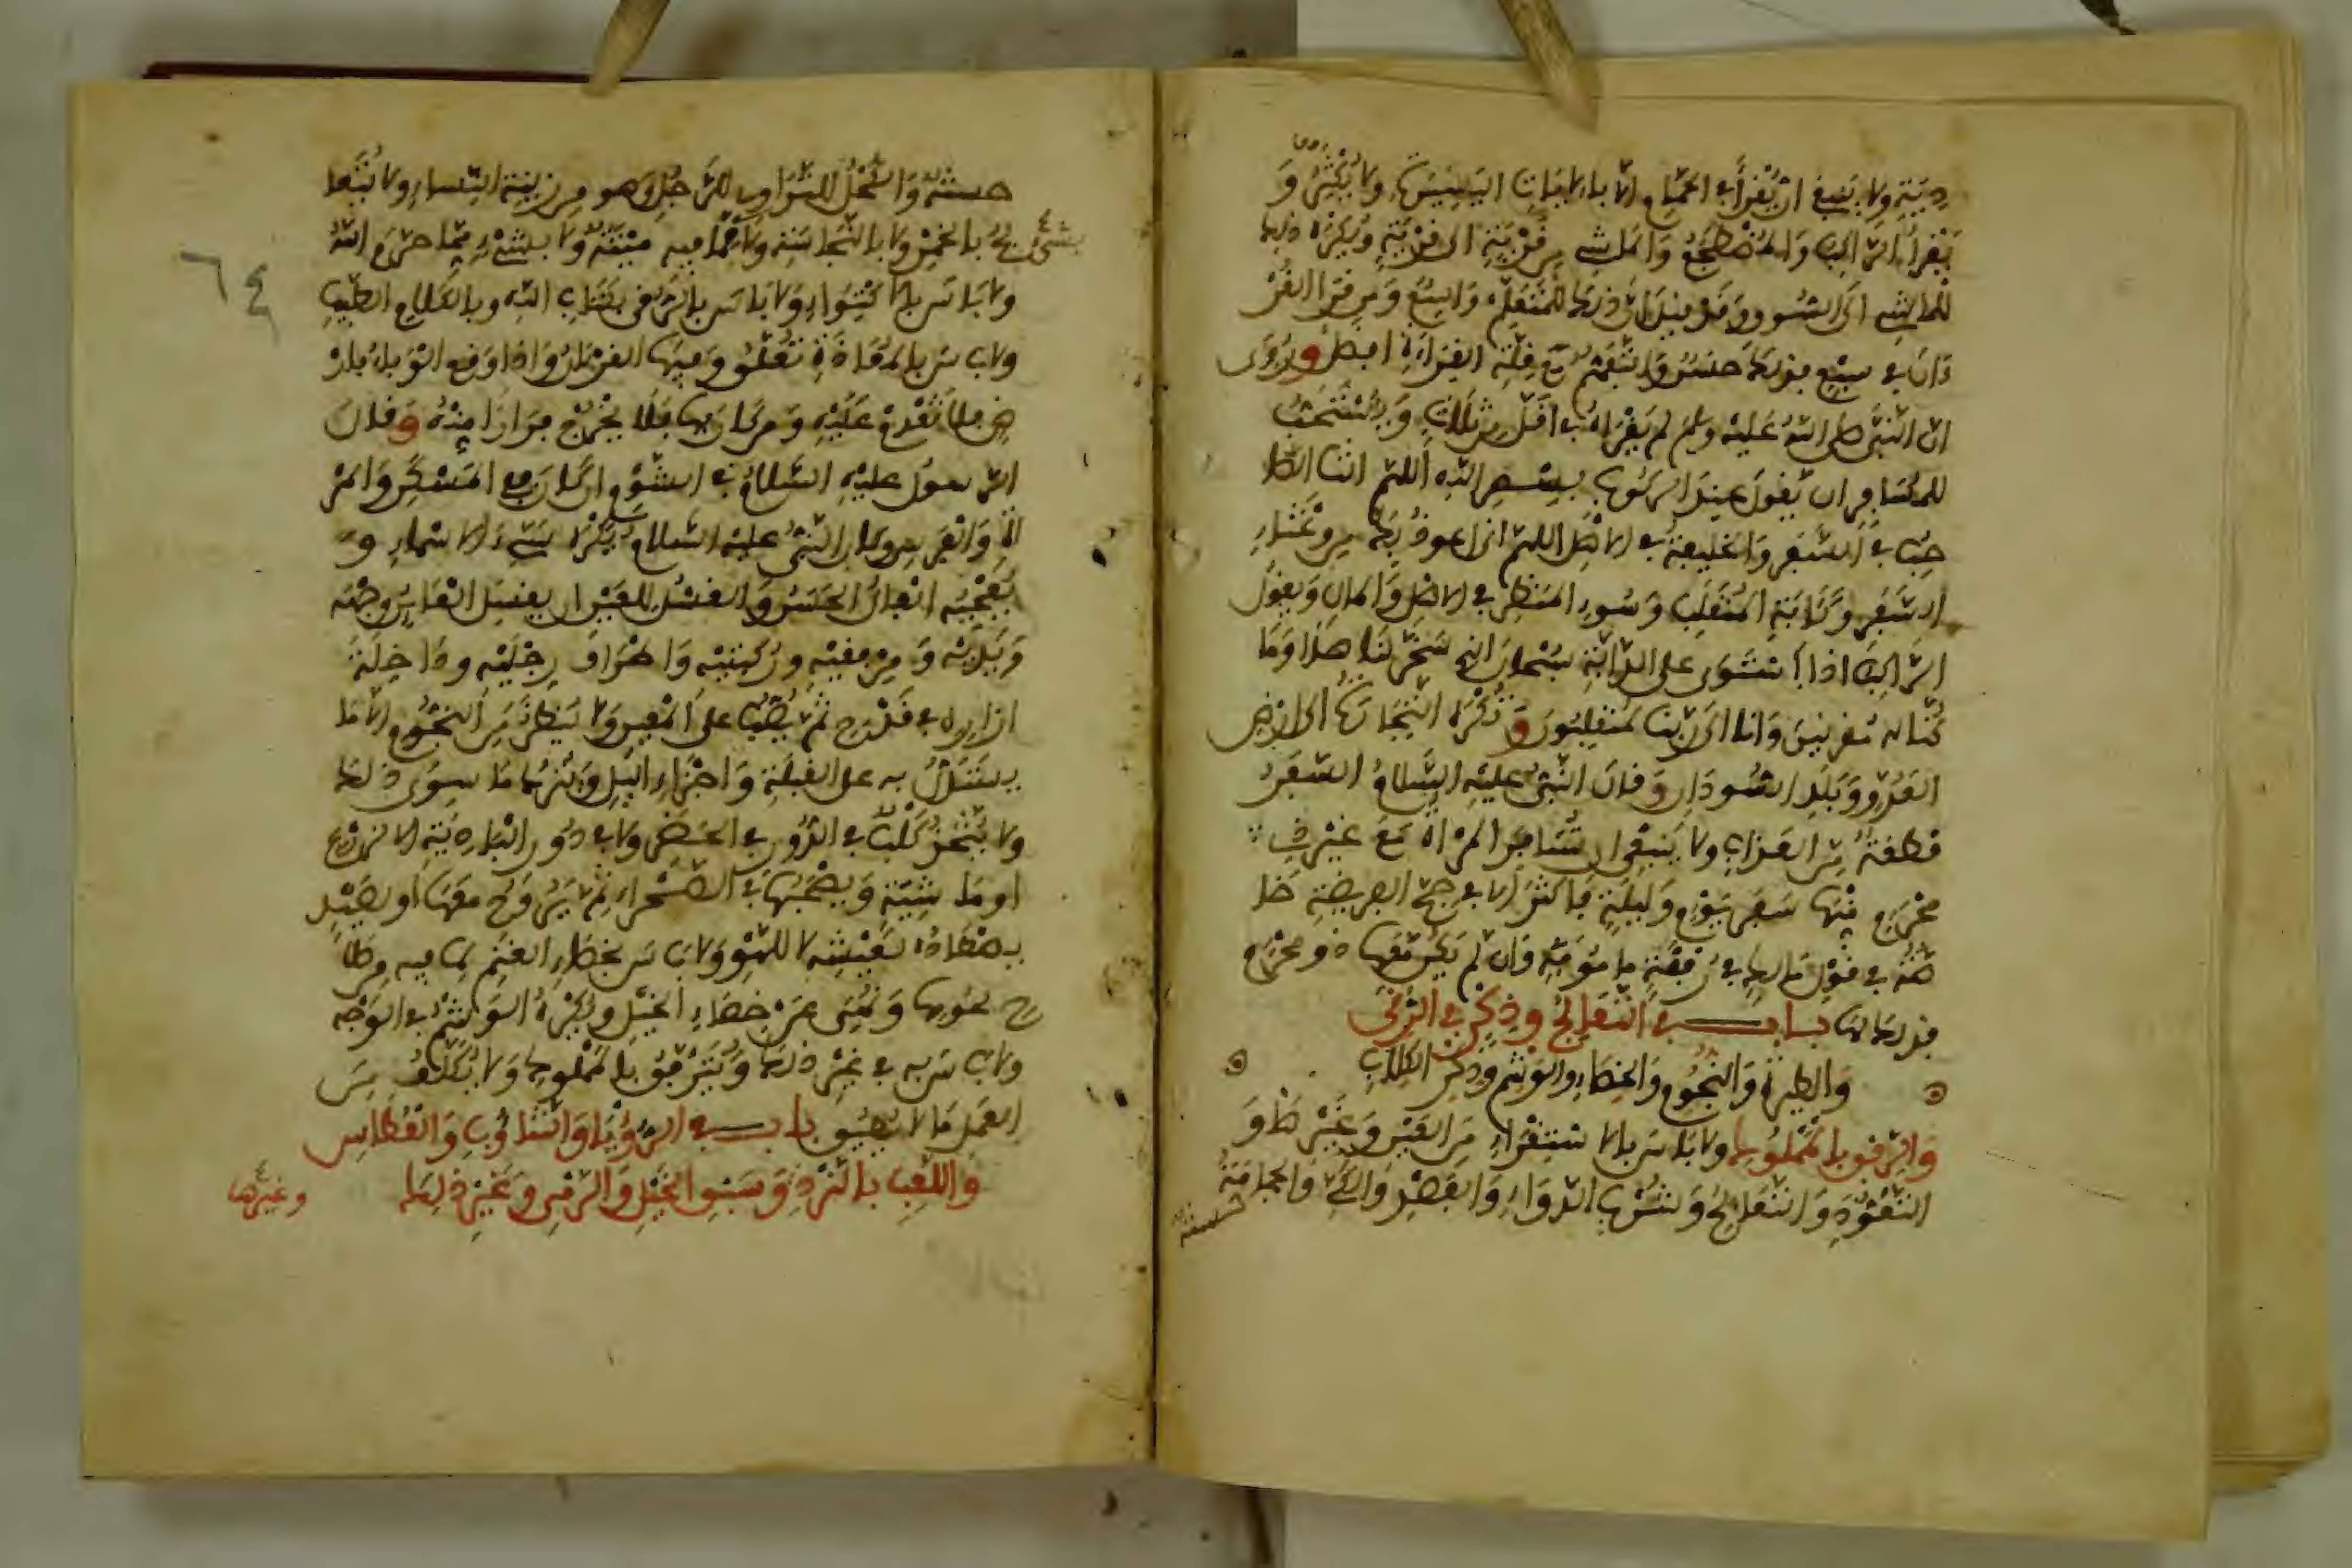 دية ولا ينبغي ان يقرأ في الحمام الا بالايات اليسيرة ولا يكثر و
يقرأ الراكب والمضطجع والماشي من قرية الى قرية ويكره ذلك
للماشي الى السوق وقد قيل ان ذلك للمتعلم واسع ومن قرا القر
ءان في سبع فذلك حسن والتفهم مع قلة القراءة افضل وروي
ان النبي صلى الله عليه وسلم لم يقراه في اقل من ثلاث ويستحب
للمسافر ان يقول عند الركوب بسم الله اللهم انت الصا
حب في السفر والخليفة في الاهل اللهم اني اعوذ بك من وعثاء
السفر وكئابة المنقلب وسوء المنظر في الاهل والمال ويقول
الراكب اذا استوى على الدابة سبحان الذي سخر لنا هذا وما
كنا له مقرنين وانا الى ربنا لمنقلبون وتكره التجارة الى ارض
العدو وبلد السودان وقال النبي عليه السلام السفر
قطعة من العذاب ولا ينبغي ان تسافر المراة مع غير ذي
محرم منها سفر يوم وليلة فاكثر الا في حج الفريضة خا
صة في قول مالك في رفقة مامونة وان لم يكن معها ذو محرم
فذلك لها باب في التعالج وذكر الرقى
والطيرة والنجوم والخصاء والوشم وذكر الكلاب
والرفق بالمملوك ولا باس بالاسترقاء من العين وغيرها و
التعوذ والتعالج وشرب الدواء والفصد والكي والحجامة
حسنة
حسنة والكحل للتداوي للرجل وهو من زينة النساء ولا يتعا
لج بالخمر ولا بالنجاسة ولا بما فيه ميتة ولا بشيء مما حرم الله
ولا باس بالاكتواء ولا باس بالرقى بكتاب الله وبالكلام الطيب
ولا باس بالمعاذة تعلق وفيها القرءان واذا وقع الوباء بار
ض فلا تقدم عليه ومن كان بها فلا يخرج فرارا منه وقال
الرسول عليه السلام في الشوم ان كان ففي المسكن والمر
اة والفرس وكان النبي عليه السلام يكره سيء الاسماء و
يعجبه الفال الحسن والغسل للعين ان يغسل العاين وجهه
ويديه ومرفقيه وركبتيه واطراف رجليه وداخلة
ازاره في قدح ثم يصب على المعين ولا ينظر في النجوم الا ما
يستدل به على القبلة واجزاء الليل ويترك ما سوى ذلك
ولا يتخذ كلب في الدور في الحضر ولا في دور البادية الا لزرع
او ماشية ويصحبها في الصحراء ثم يروح معها او لصيد
يصطاده لعيشه لا للهو ولا باس بخصاء الغنم لما فيه من صلا
ح لحومها ونهي عن خصاء الخيل ويكره الوشم في الوجه
ولا باس به في غير ذلك ويترفق بالمملوك ولا يكلف من
العمل ما لا يطيق باب في الرؤيا والتثاوب والعطاس
واللعب بالنرد وسبق الخيل والرمي وغير ذلك
وغيرها
بشيء
٦٤